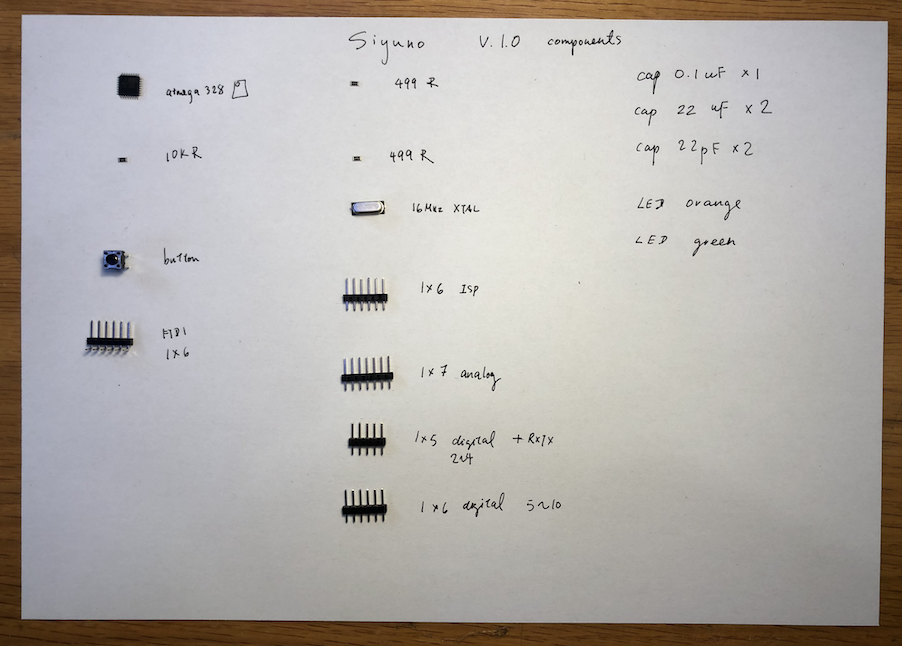 Siyuno V.1.0 components
atmega 328
10K R
button
FTDI
1x6
499 R
499 R
16MHz XTAL
1x6 ISP
1x7 analog
1x5 digital + RXTX
2~4
1x6 digital 5~10
cap 0.1uF x1
cap 22 uF x2
cap 22pF x2
LED orange
LED green